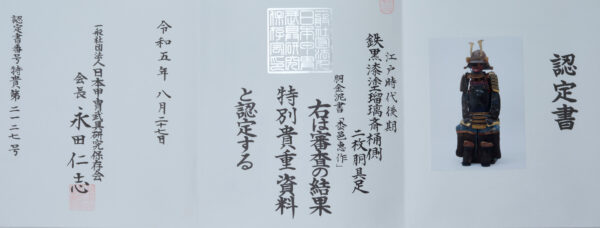 認定書
江戸時代後期
鉄黒漆塗瑠璃斎桶側
二枚胴具足
右は審査の結果
特別貴重資料
と認定する
令和五年八月二十七日
一般社団法人日本甲冑武具研究保存会
会長 永田仁志
認定書番号特貴第二一二七号